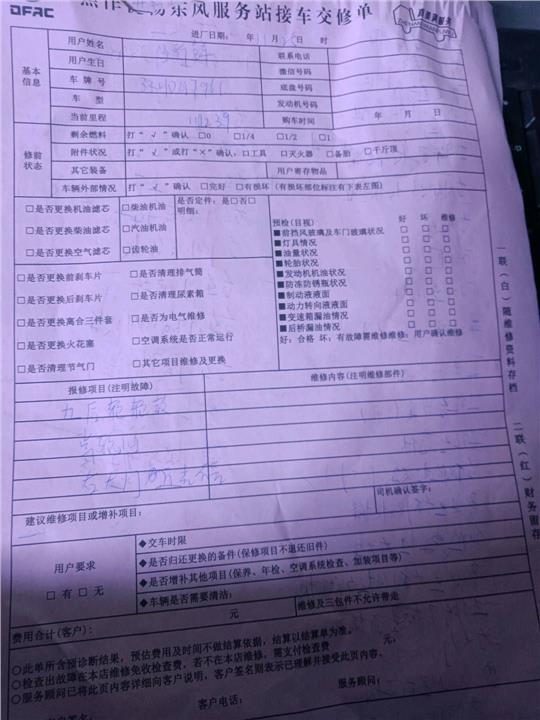 DFAC
东风服务站接车交修单
进厂日期: 年 月 日 时
基本信息
用户姓名
联系电话
用户生日
微信号码
车牌号
底盘号码
车 型
发动机号码
当前里程
购车时间
年 月 日
修前状态
剩余燃料 打“√”确认 □0 □1/4 □1/2 □1
附件状况 打“√”或打“×”确认:□工具 □灭火器 □备胎 □千斤顶
其它装备
用户寄存物品
车辆外部情况 打“√”确认 □完好 □有损坏(有损坏部位标注有下表左图)
□是否更换机油滤芯
□是否更换柴油滤芯
□是否更换空气滤芯
□柴油机油
□汽油机油
□齿轮油
是否定件:是□否□
明细:
□是否更换前刹车片
□是否更换后刹车片
□是否更换离合三件套
□是否更换火花塞
□是否清理节气门
□是否清理排气筒
□是否清理尿素箱
□是否为电气维修
□空调系统是否正常运行
□其它项目维修及更换
预检(目视) 好 坏 维修
■前挡风玻璃及车门玻璃状况 □ □ □
■灯具情况 □ □ □
■油量状况 □ □ □
■轮胎状况 □ □ □
■发动机机油状况 □ □ □
■防冻防锈瓶状况 □ □ □
■制动液液面 □ □ □
■动力转向液液面 □ □ □
■变速箱漏油情况 □ □ □
■后桥漏油情况 □ □ □
好:合格 坏:有故障需维修维修:用户确认维修
报修项目(注明故障)
维修内容(注明维修部件)
司机确认签字:
建议维修项目或增补项目:
用户要求
□有 □无
◆交车时限
◆是否归还更换的备件(保修项目不退还旧件)
◆是否增补其他项目(保养、年检、空调系统检查、加装项目等)
◆车辆是否需要清洁:
元
维修及三包件不允许带走
费用合计(客户):
○此单所含预诊断结果,预估费用及时间不做结算依据,结算以结算单为准。
○检查出故障在本店维修免收检查费,若不在本店维修,需支付检查费 元,
○服务顾问已将此页内容详细向客户说明,客户签名则表示已理解并接受此页内容。
服务顾问:
客户电话:
一联(白)随维修资料存档
二联(红)财务留存